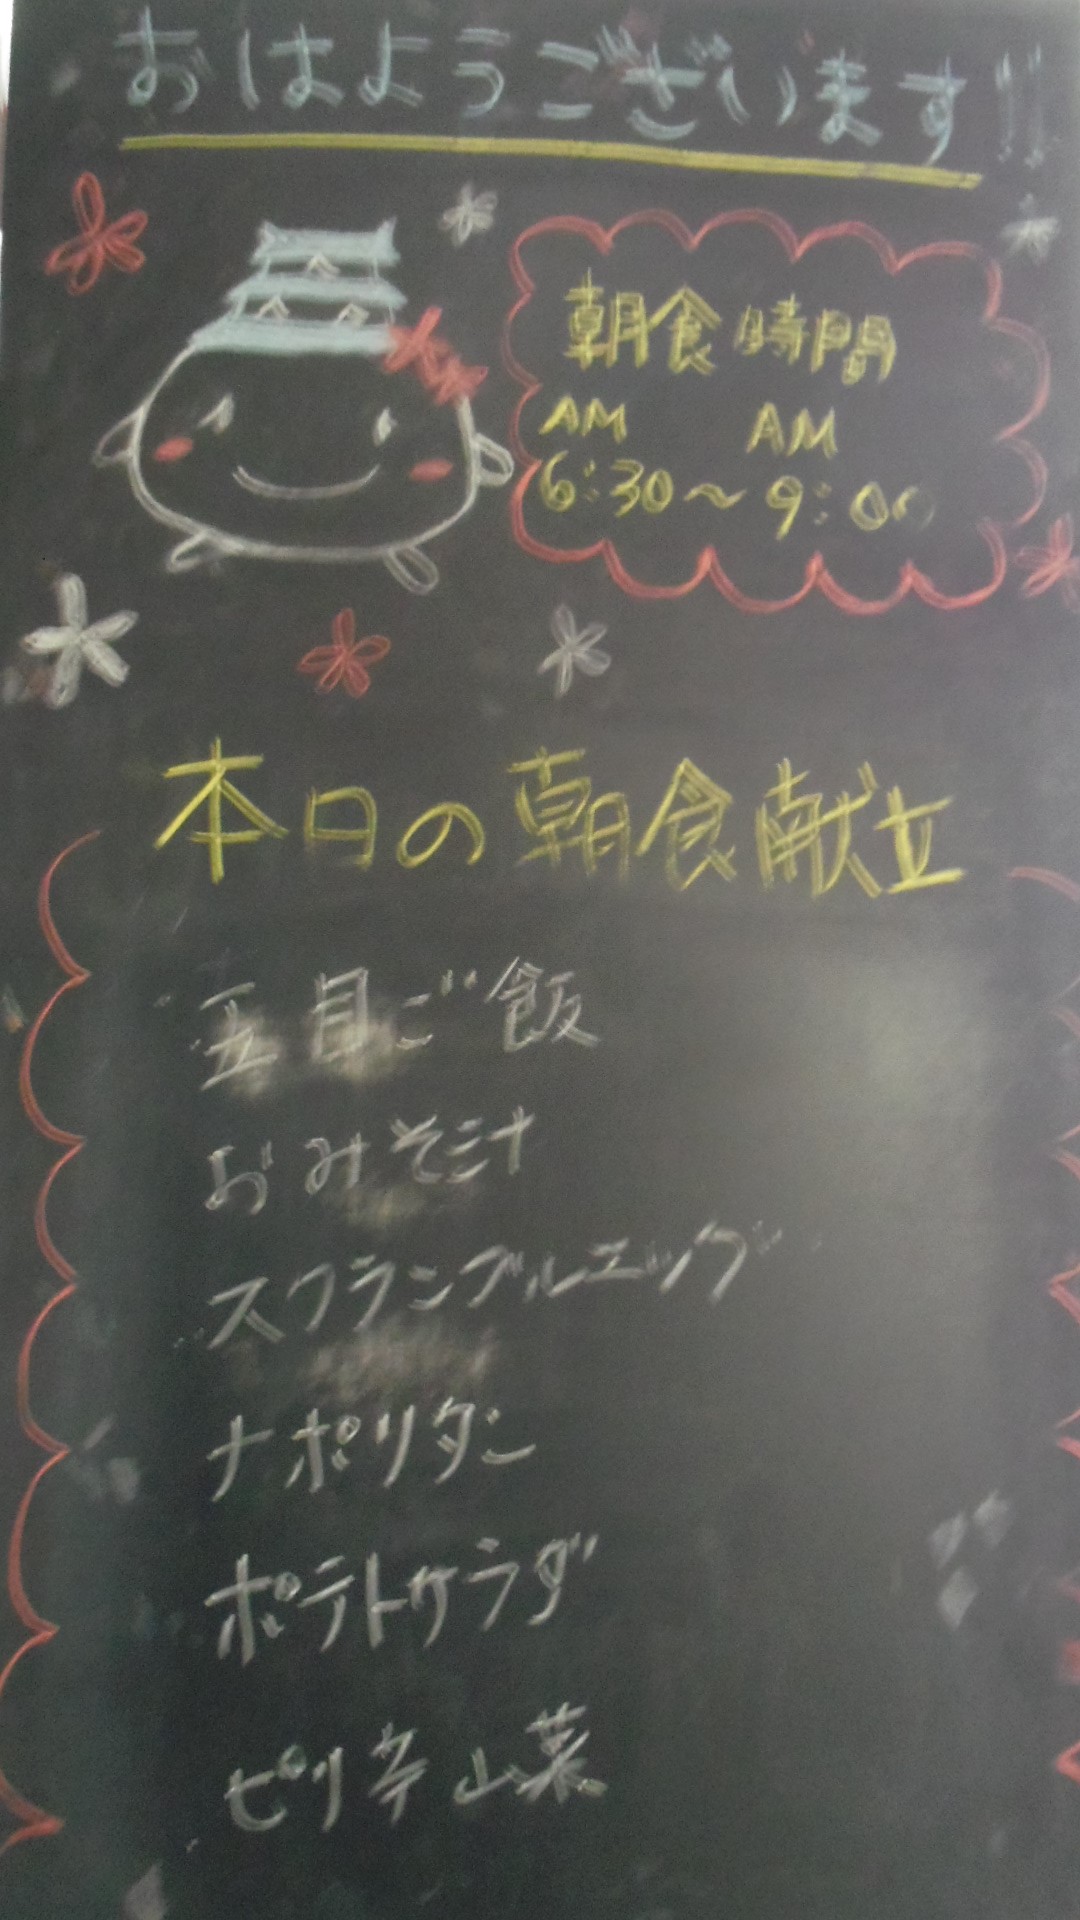 おはようございます!!
朝食時間
AM AM
6:30～9:00
本日の朝食献立
五目ご飯
おみそ汁
スクランブルエッグ
ナポリタン
ポテトサラダ
ピリ辛山菜